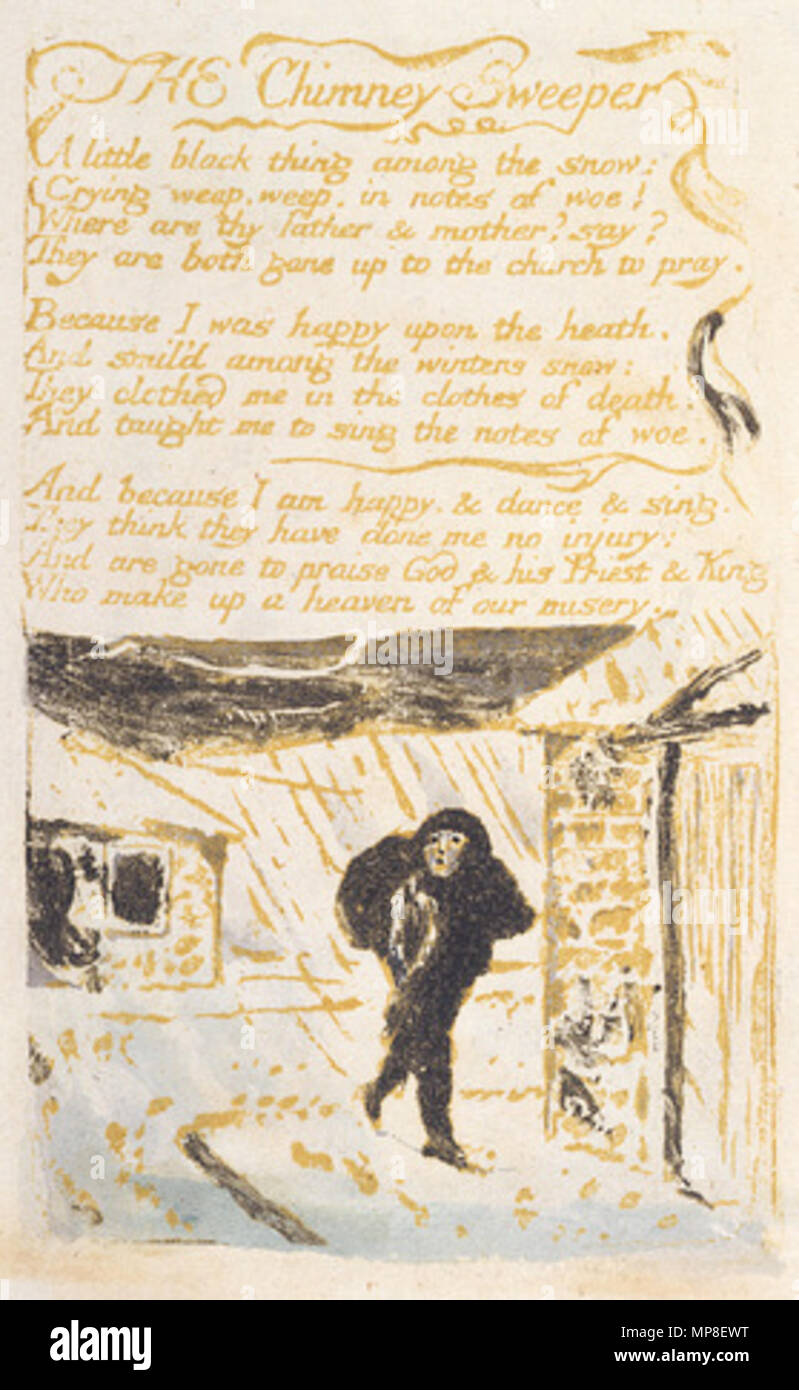 THE Chimney Sweeper
A little black thing among the snow:
Crying weep, weep, in notes of woe!
Where are thy father & mother? say?
They are both gone up to the church to pray.
Because I was happy upon the heath.
And smil'd among the winters snow:
They clothed me in the clothes of death.
And taught me to sing the notes of woe.
And because I am happy. & dance & sing.
They think they have done me no injury:
And are gone to praise God & his Priest & King
Who make up a heaven of our misery.
alamy
alamy
a
alamy
Image ID: MP8EWT
www.alamy.com